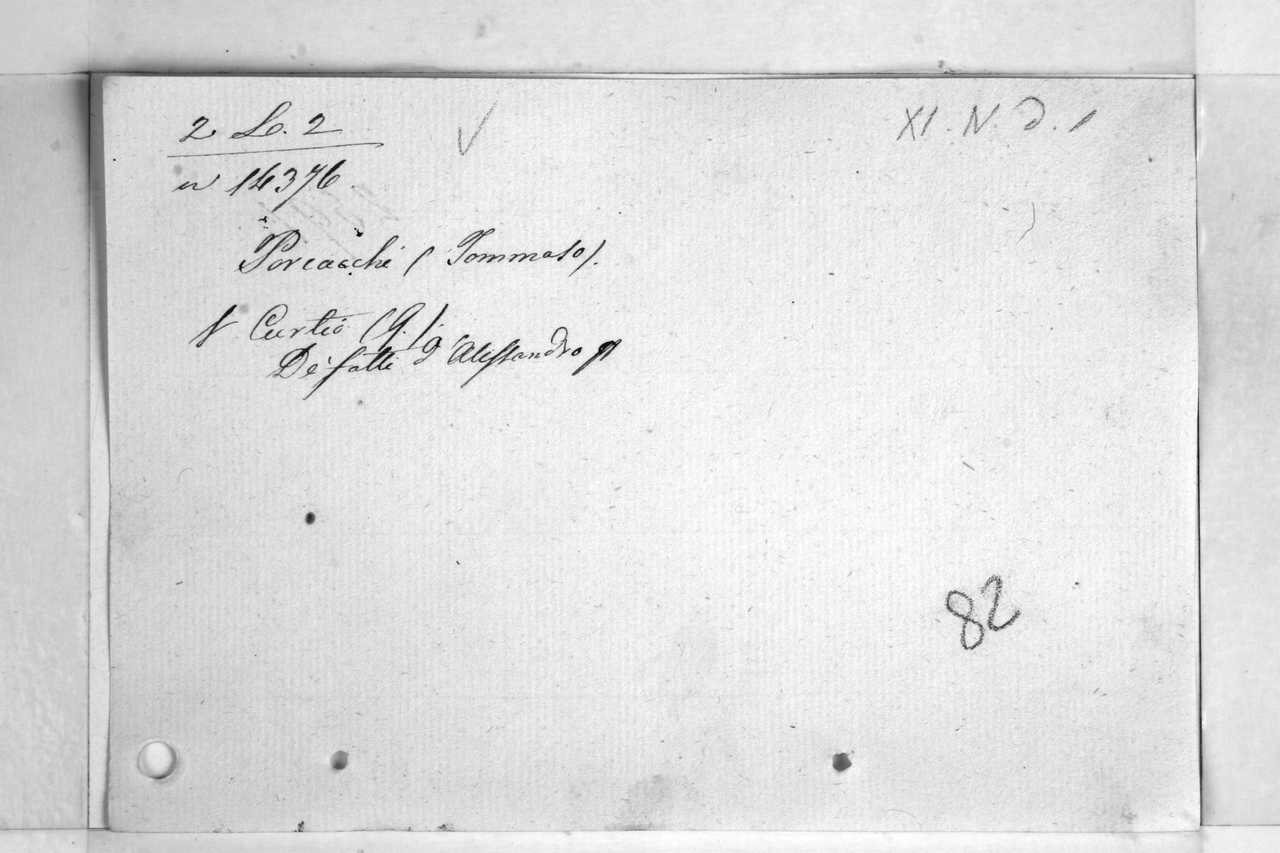 2 Lo. 2
XI. N. D. 1
n 14376
Porcacchi (Tommaso).
V Curtio (Q.)
De' fatti d'Alessandro
82